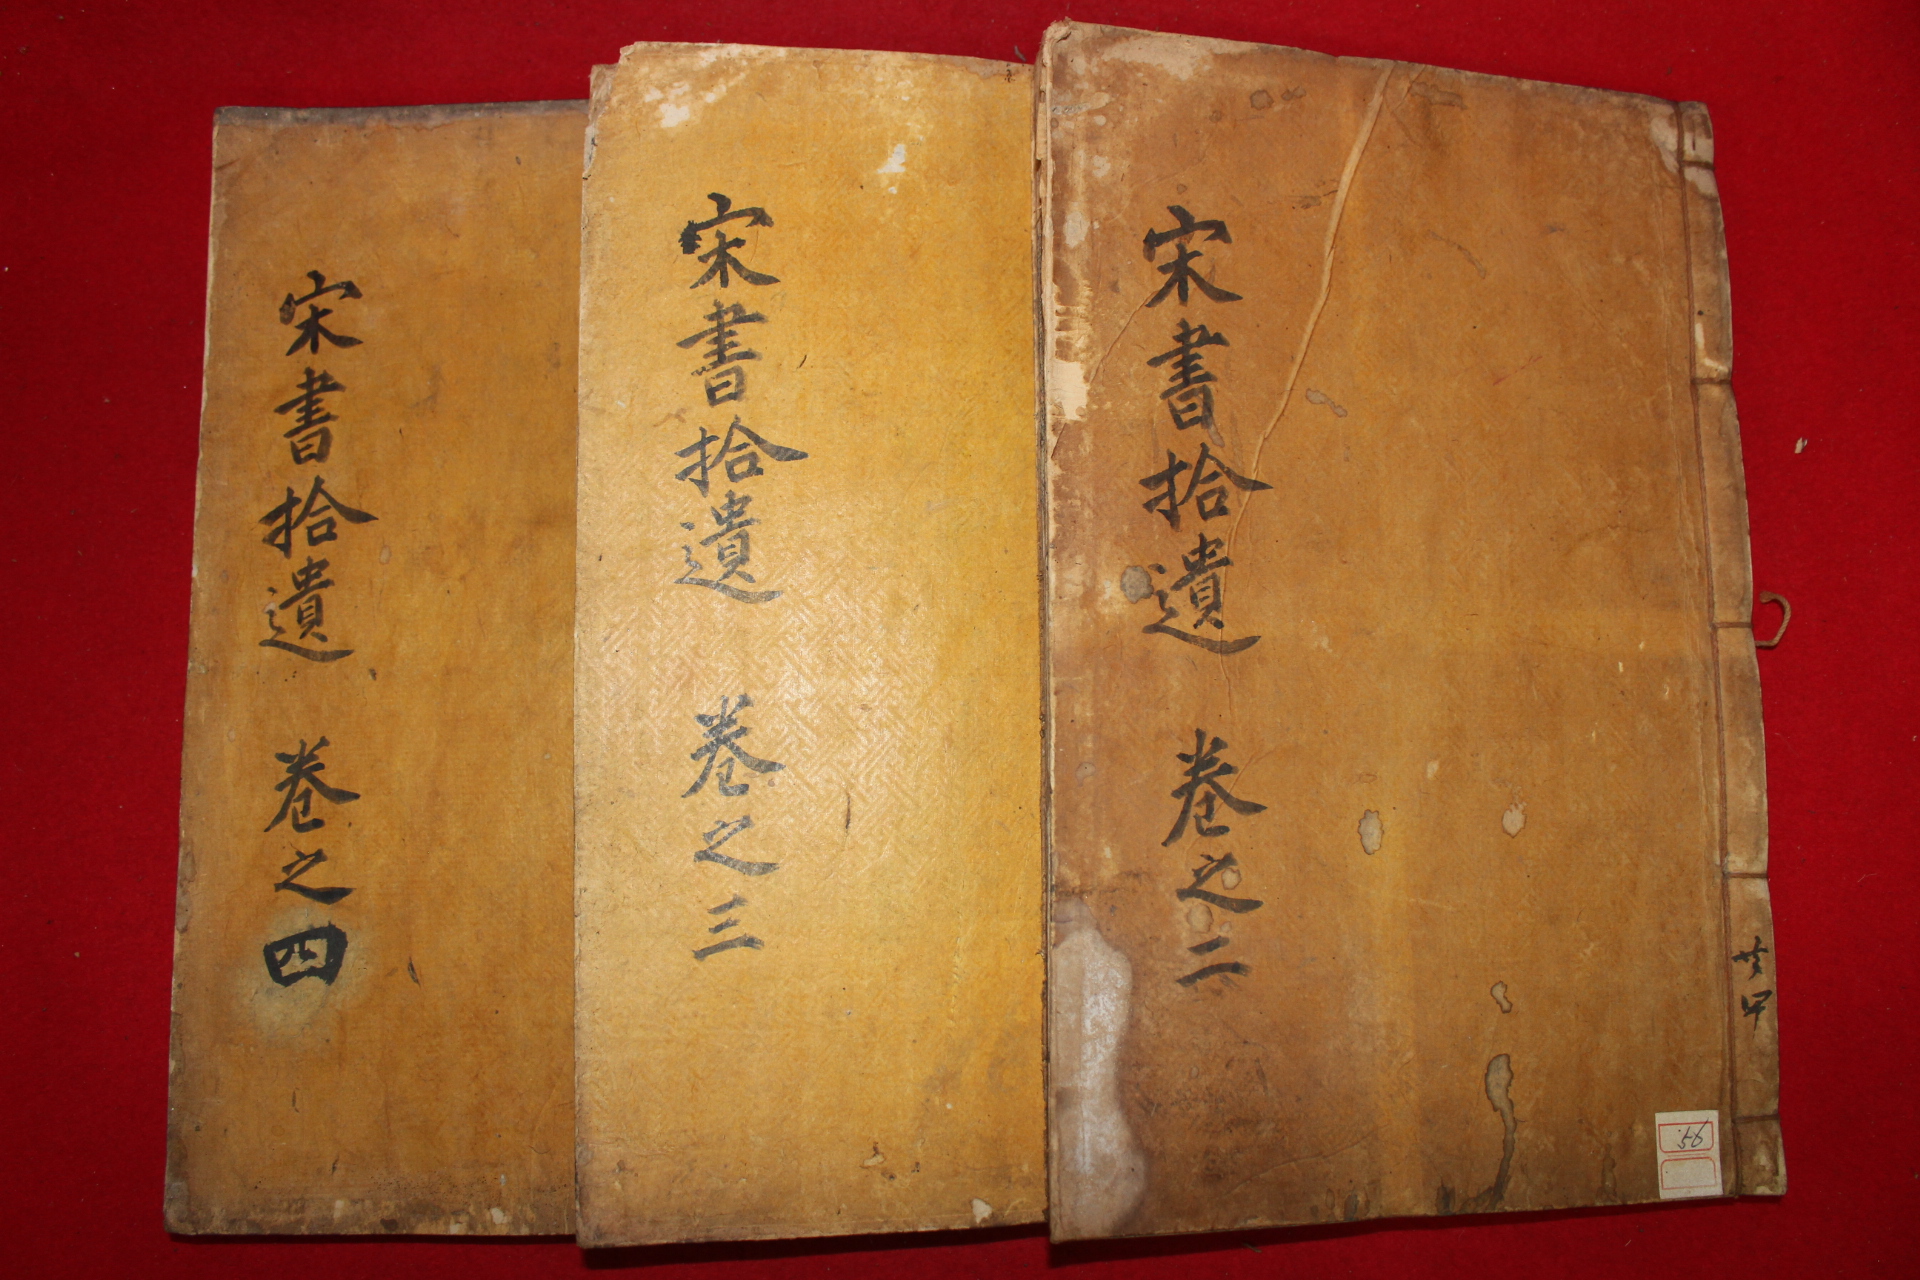 宋書拾遺 卷之二
宋書拾遺 卷之三
宋書拾遺 卷之四
56